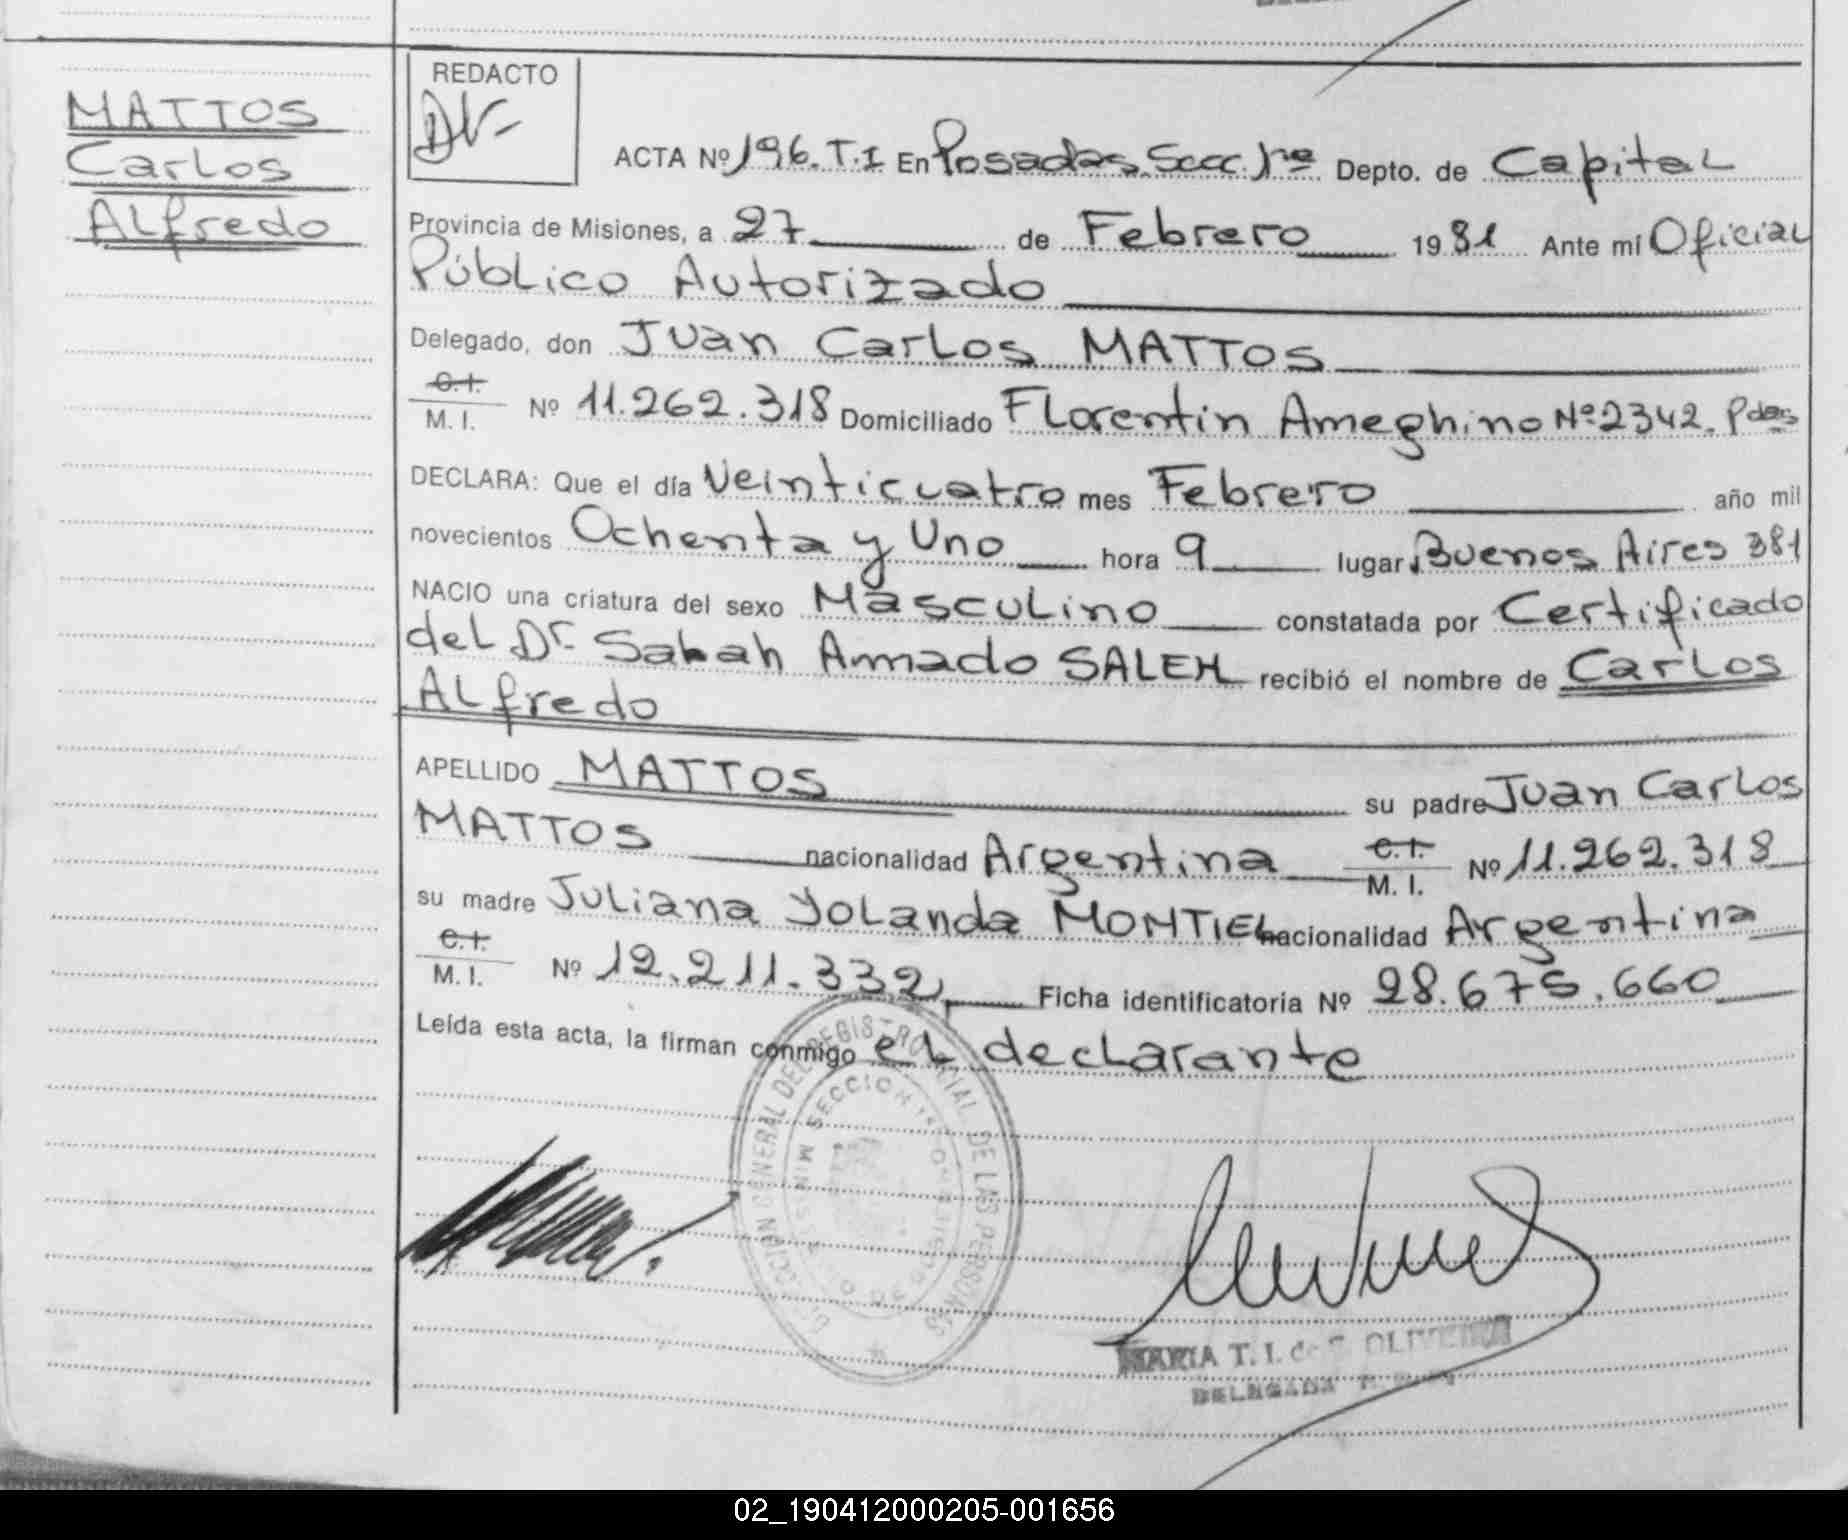 MATTOS
Carlos
Alfredo
REDACTO
ACTA Nº 196. T.I En Posadas. Secc. 1ra Depto. de Capital
Provincia de Misiones, a 27 de Febrero 1981 Ante mí Oficial
Público Autorizado
Delegado, don Juan Carlos MATTOS
C.I.
M. I. Nº 11.262.318 Domiciliado Florentin Ameghino Nº 2342. Pdas
DECLARA: Que el día Veinticuatro mes Febrero año mil
novecientos Ochenta y Uno hora 9 lugar Buenos Aires 381
NACIO una criatura del sexo Masculino constatada por Certificado
del Dr. Sabah Amado SALEH recibió el nombre de Carlos
Alfredo
APELLIDO MATTOS su padre Juan Carlos
MATTOS nacionalidad Argentina C.I. M. I. Nº 11.262.318
su madre Juliana Yolanda MONTIEL nacionalidad Argentina
C.I.
M. I. Nº 12.211.332 Ficha identificatoria Nº 28.675.660
Leída esta acta, la firman conmigo el declarante
GENERAL DEL REGISTRO DE LAS PERSONAS
SECCION
MARIA T. I. de OLIVEIRA
DELEGADA
02_190412000205-001656